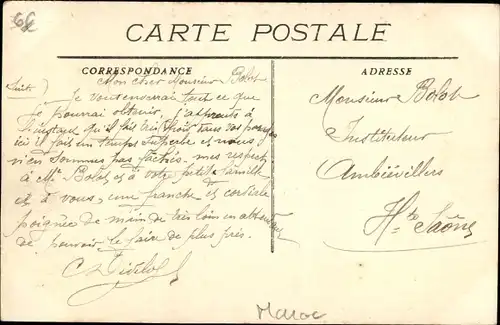 66
CARTE POSTALE
CORRESPONDANCE
ADRESSE
Mon cher Monsieur Bolot
(Suite)
Je vous enverrai tout ce que
je pourrai obtenir. J'apprends à
l'instant qu'il fait très froid dans vos pays
ici il fait un temps superbe et nous
n'en sommes pas fâchés. mes respects
à Mme Bolot et à votre petite famille
et à vous, une franche et cordiale
poignée de main de très loin en attendant
de pouvoir le faire de plus près.
Monsieur Bolot
Instituteur
Ambiévillers
Hte Saône
Maroc